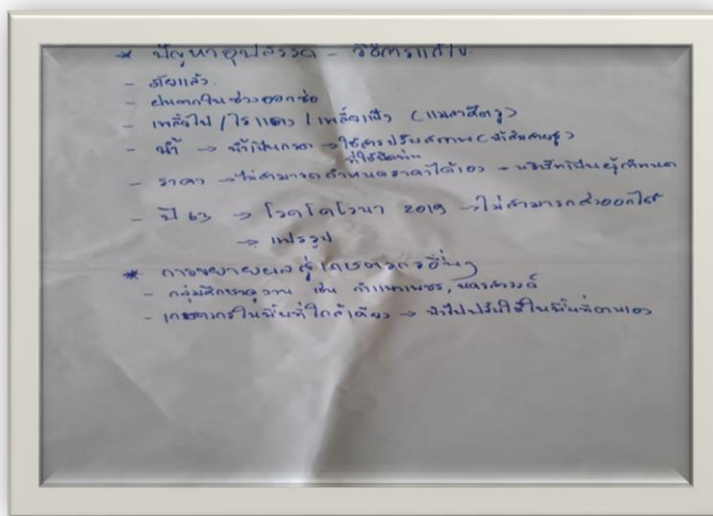 * ปัญหาอุปสรรค - วิธีการแก้ไข
- ภัยแล้ง
- ฝนตกในช่วงออกช่อ
- เพลี้ยไฟ / ไรแดง / เพลี้ยแป้ง (แมลงศัตรู)
- น้ำ → น้ำเป็นกรด → ใช้สารปรับสภาพ (น้ำส้มสายชู)
ที่ใช้ฉีดพ่น
- ราคา → ไม่สามารถกำหนดราคาได้เอง - บริษัทเป็นผู้กำหนด
- ปี 63 → โรคโคโรนา 2019 → ไม่สามารถส่งออกได้
→ แปรรูป
* การขยายผลสู่เกษตรกรอื่นๆ
- กลุ่มศึกษาดูงาน เช่น กำแพงเพชร, นครสวรรค์
- เกษตรกรในพื้นที่ใกล้เคียง → นำไปปรับใช้ในพื้นที่ตนเอง